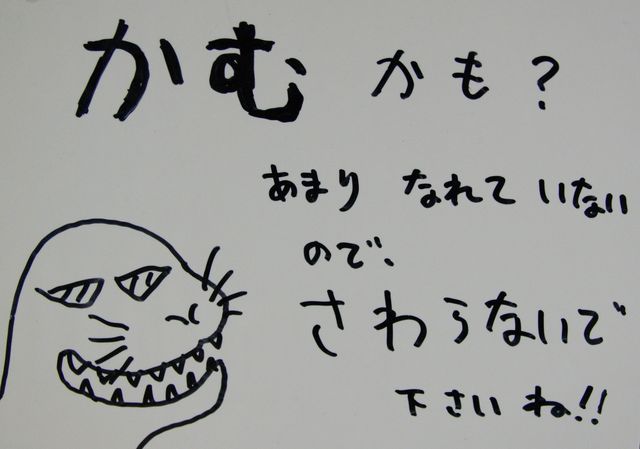 かむ かも?
あまり なれて いない
ので、
さわらないで
下さいね!!